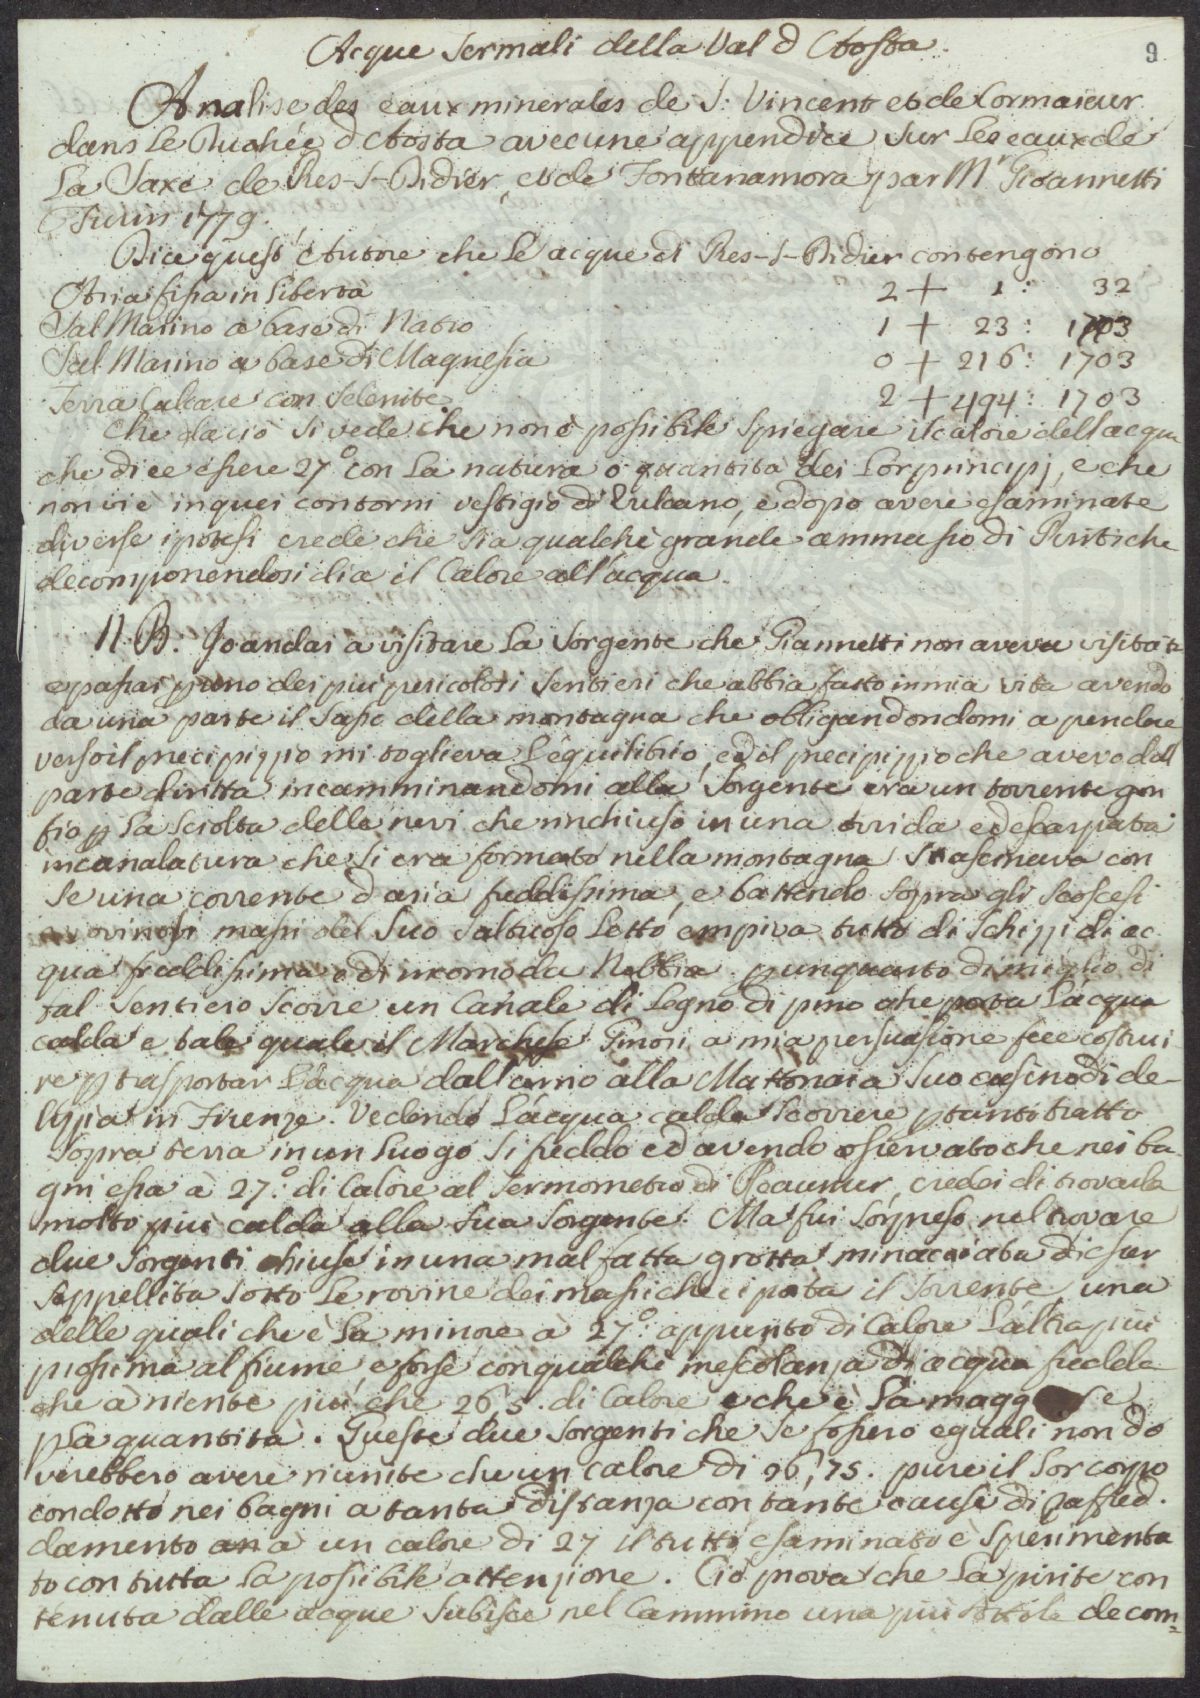 Acque Termali della Val d'Aosta.
9
Analise des eaux minerales de S: Vincent et de Cormaieur
dans le Duchée d'Aosta avec une appendice sur les eaux de
La Saxe de Pres-S-Didier, et de Fontanamora par Mr Gioannetti
Turin 1779.
Dice quest'Autore che le acque di Pres-S-Didier contengono
Aria fissa in libertà 2 + 1: 32
Sal Marino a base di Natro 1 + 23: 1703
Sal Marino a base di Magnesia 0 + 216: 1703
Terra Calcare con Selenite 2 + 494: 1703
Che da ciò si vede che non è possibile spiegare il calore dell'acqua
che dice essere 27° con la natura o quantità dei lor principj, e che
non vi è in quei contorni vestigio di Vulcano, e dopo avere esaminate
diverse ipotesi crede che sia qualche grande ammasso di Piriti che
decomponendosi dia il Calore all'acqua.
N.B. Io andai a visitare la Sorgente che Giannetti non aveva visitate
e passai p uno dei più pericolosi sentieri che abbia fatto in mia vita avendo
da una parte il sasso della montagna che obligandondomi a pendere
verso il precipizzio mi toglieva l'equilibrio, ed il precipizzio che avevo dall
parte diritta incamminandomi alla Sorgente era un torrente gon
fio p la sciolta delle nevi che rinchiuso in una orrida e descarpata
incanalatura che si era formato nella montagna strascinava con
se una corrente d'aria freddissima, e battendo sopra gli scoscesi
e rovinosi massi del suo saltuoso letto empiva tutto di schizzi di ac
qua freddissima e di incomoda Nebbia. p un quarto di miglio di
tal sentiero scorre un Canale di legno di pino che porta l'acqua
calda e tale quale il Marchese Ginori a mia persuasione fece costrui
re p trasportar l'acqua dall'arno alla Mattonaia suo casino di de-
lizzia in Firenze. Vedendo l'acqua calda scorrere p tanto tratto
sopra terra in un luogo sì freddo ed avendo osservato che nei ba
gni essa à 27.° di Calore al Termometro di Reaumur, credei di trovarla
molto più calda alla sua sorgente. Ma fui sorpreso nel trovare
due sorgenti chiuse in una mal fatta grotta minacciata di esser
seppellita sotto le rovine dei massi che ci porta il Torrente, una
delle quali che è la minore à 27.° appunto di Calore l'altra più
prossima al fiume, e forse con qualche mescolanza di acqua fredda
che à niente più che 26,5. di Calore e che è la magg re
p la quantità. Queste due sorgenti che se fossero eguali non do
verebbero avere riunite che un calore di 26,75. pure il lor corpo
condotto nei bagni a tanta distanza con tante cause di rafred.
damento à un calore di 27 il tutto esaminato e sperimenta
to con tutta la possibile attenzione. Ciò prova che la pirite con
tenuta dalle acque subisce nel Cammino una più decom=